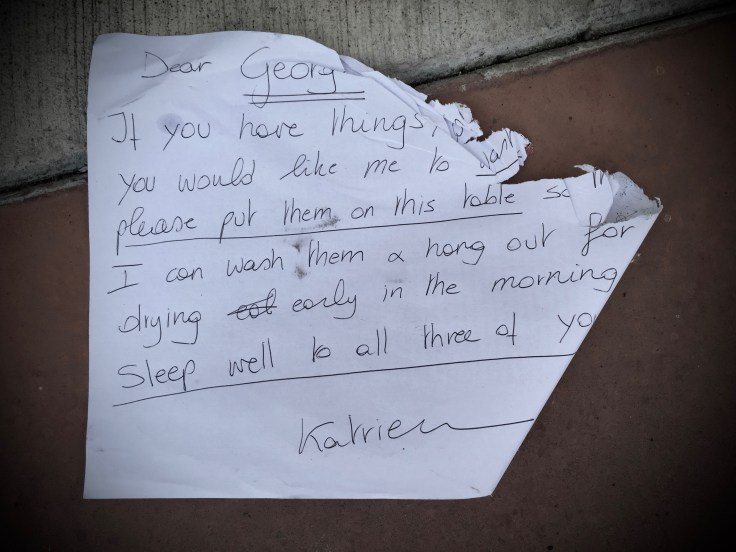 Dear Georg
If you have things,
you would like me to
please put them on this table so
I can wash them & hang out for
drying early in the morning
Sleep well to all three of yo
Katrien